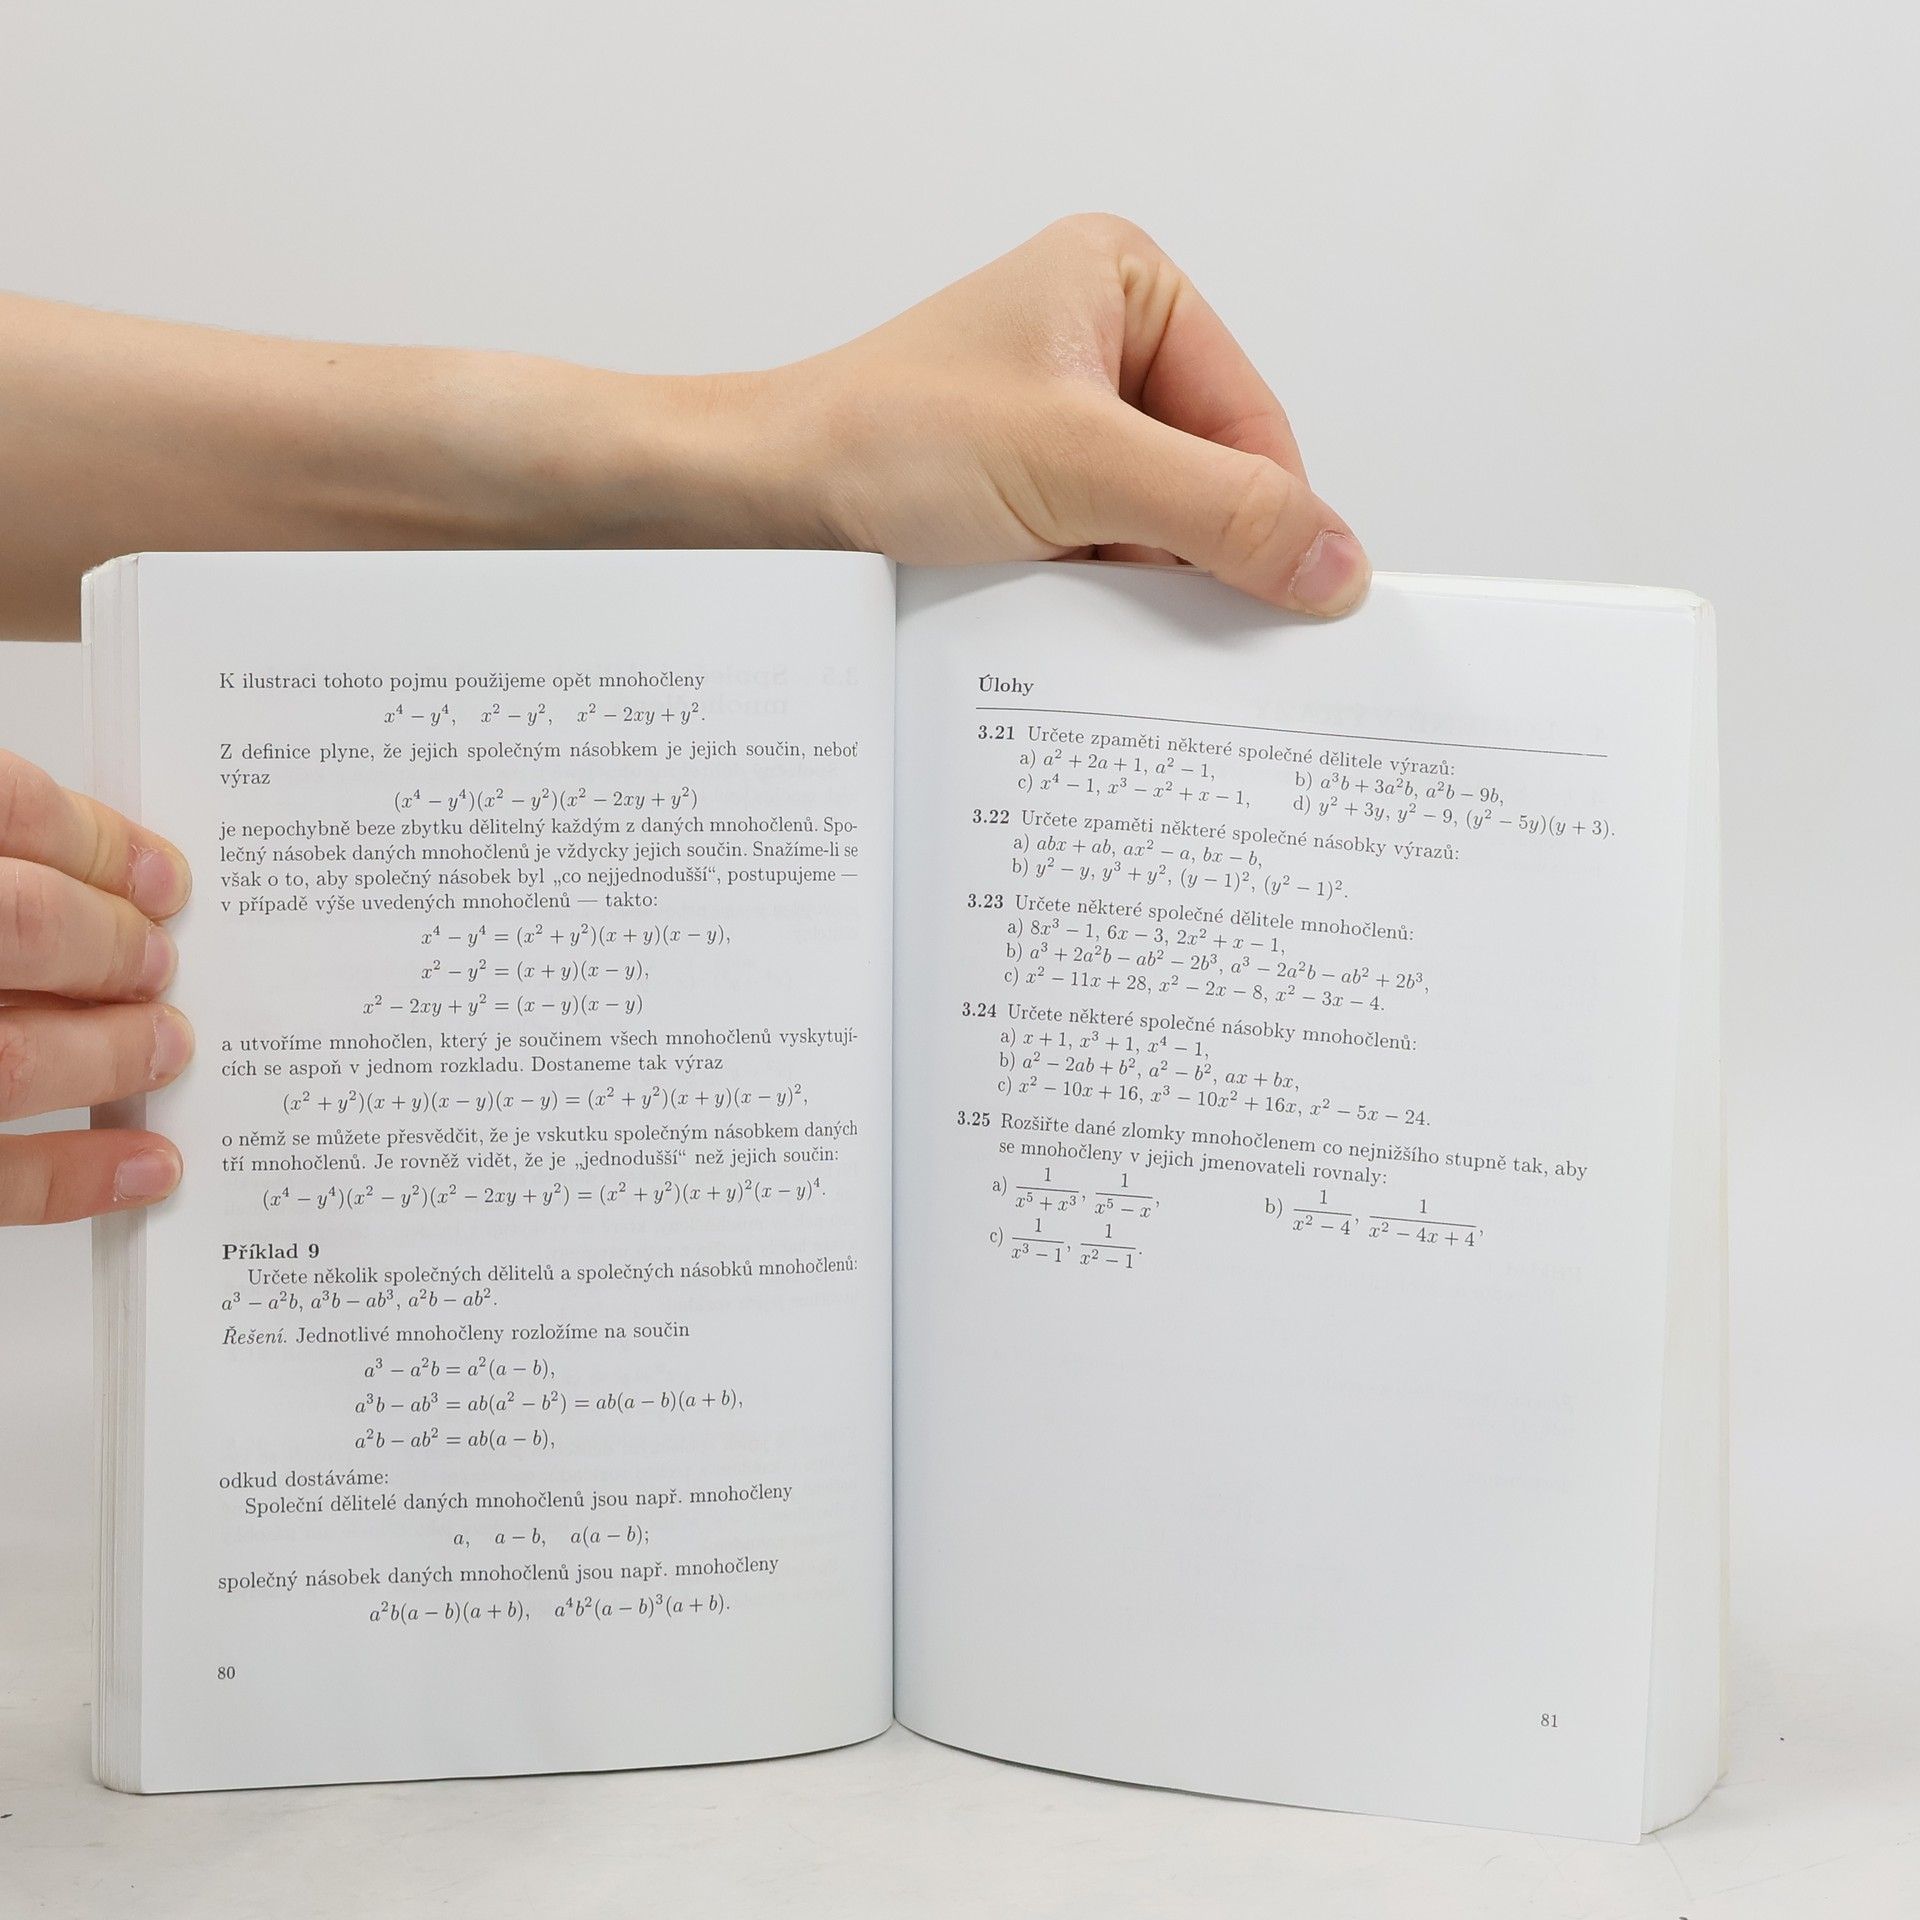 K ilustraci tohoto pojmu použijeme opět mnohočleny
x⁴ − y⁴, x² − y², x² − 2xy + y².
Z definice plyne, že jejich společným násobkem je jejich součin, neboť
výraz
(x⁴ − y⁴)(x² − y²)(x² − 2xy + y²)
je nepochybně beze zbytku dělitelný každým z daných mnohočlenů. Spo-
lečný násobek daných mnohočlenů je vždycky jejich součin. Snažíme-li se
však o to, aby společný násobek byl „co nejjednodušší“, postupujeme —
v případě výše uvedených mnohočlenů — takto:
x⁴ − y⁴ = (x² + y²)(x + y)(x − y),
x² − y² = (x + y)(x − y),
x² − 2xy + y² = (x − y)(x − y)
a utvoříme mnohočlen, který je součinem všech mnohočlenů vyskytují-
cích se aspoň v jednom rozkladu. Dostaneme tak výraz
(x² + y²)(x + y)(x − y)(x − y) = (x² + y²)(x + y)(x − y)²,
o němž se můžete přesvědčit, že je vskutku společným násobkem daných
tří mnohočlenů. Je rovněž vidět, že je „jednodušší“ než jejich součin:
(x⁴ − y⁴)(x² − y²)(x² − 2xy + y²) = (x² + y²)(x + y)²(x − y)⁴.
Příklad 9
Určete několik společných dělitelů a společných násobků mnohočlenů:
a³ − a²b, a³b − ab³, a²b − ab².
Řešení. Jednotlivé mnohočleny rozložíme na součin
a³ − a²b = a²(a − b),
a³b − ab³ = ab(a² − b²) = ab(a − b)(a + b),
a²b − ab² = ab(a − b),
odkud dostáváme:
Společní dělitelé daných mnohočlenů jsou např. mnohočleny
a, a − b, a(a − b);
společný násobek daných mnohočlenů jsou např. mnohočleny
a²b(a − b)(a + b), a⁴b²(a − b)³(a + b).
80
Úlohy
3.21 Určete zpaměti některé společné dělitele výrazů:
a) a² + 2a + 1, a² − 1, b) a³b + 3a²b, a²b − 9b,
c) x⁴ − 1, x³ − x² + x − 1, d) y² + 3y, y² − 9, (y² − 5y)(y + 3).
3.22 Určete zpaměti některé společné násobky výrazů:
a) abx + ab, ax² − a, bx − b,
b) y² − y, y³ + y², (y − 1)², (y² − 1)².
3.23 Určete některé společné dělitele mnohočlenů:
a) 8x³ − 1, 6x − 3, 2x² + x − 1,
b) a³ + 2a²b − ab² − 2b³, a³ − 2a²b − ab² + 2b³,
c) x² − 11x + 28, x² − 2x − 8, x² − 3x − 4.
3.24 Určete některé společné násobky mnohočlenů:
a) x + 1, x³ + 1, x⁴ − 1,
b) a² − 2ab + b², a² − b², ax + bx,
c) x² − 10x + 16, x³ − 10x² + 16x, x² − 5x − 24.
3.25 Rozšiřte dané zlomky mnohočlenem co nejnižšího stupně tak, aby
se mnohočleny v jejich jmenovateli rovnaly:
a) 1/(x⁵ + x³), 1/(x⁵ − x), b) 1/(x² − 4), 1/(x² − 4x + 4),
c) 1/(x³ − 1), 1/(x² − 1).
81